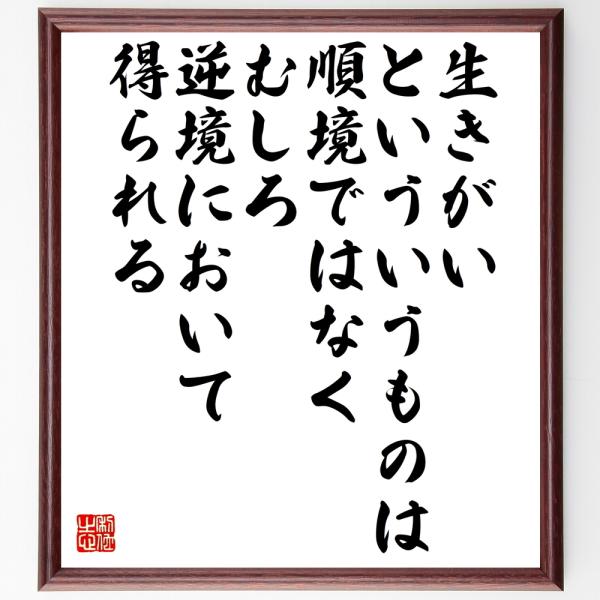 生きがい
といういうものは
順境ではなく
むしろ
逆境において
得られる